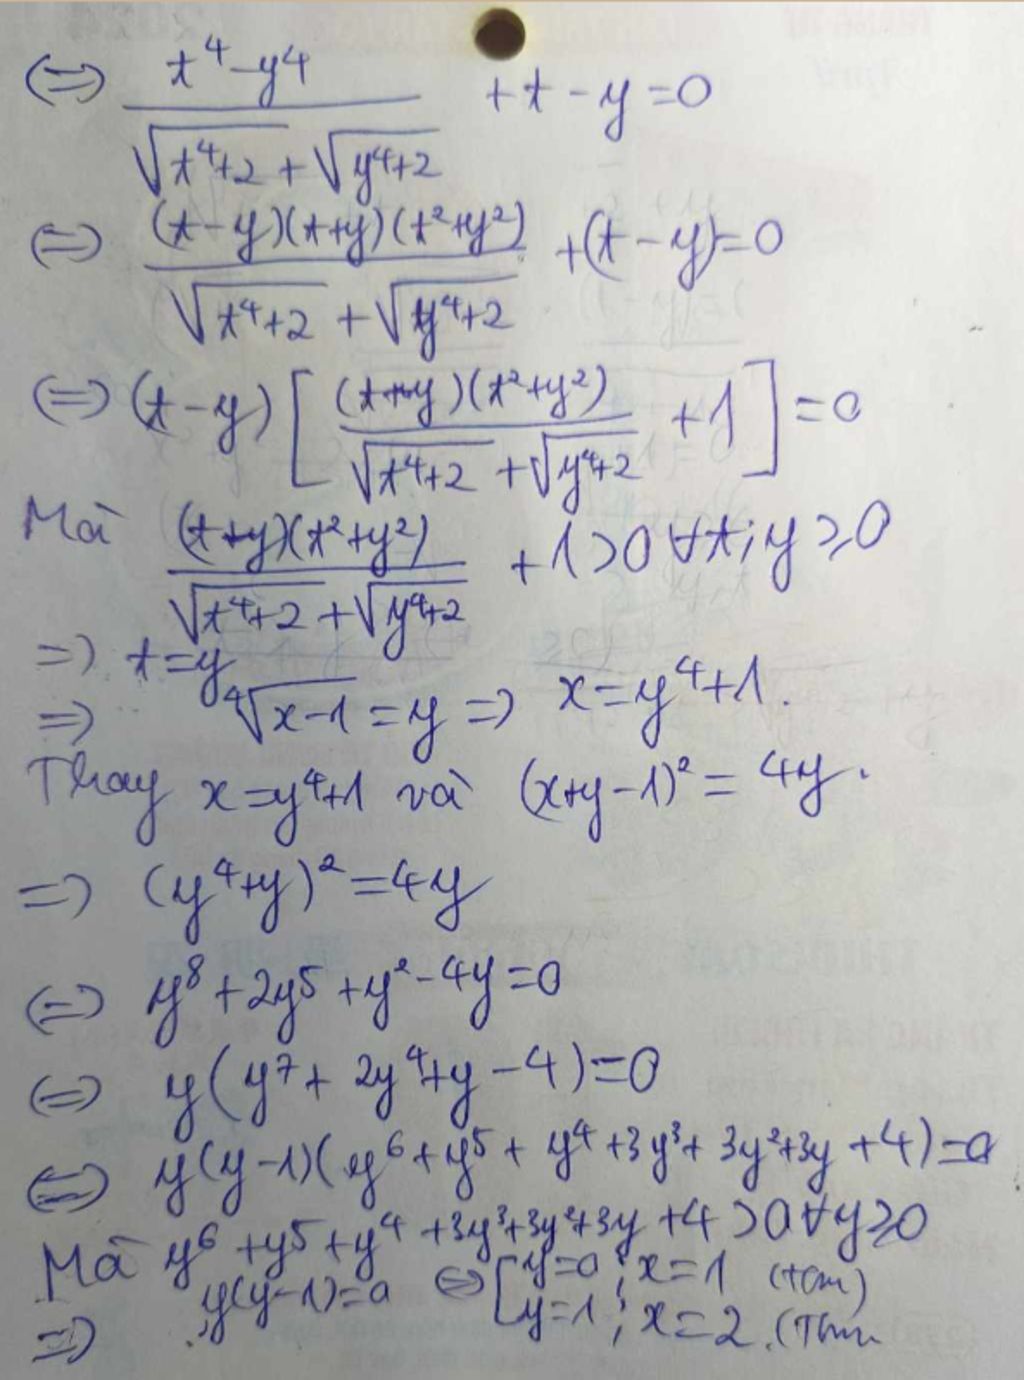 (=) (t⁴-y⁴)/(√(t⁴+2) + √(y⁴+2)) + t - y = 0
(=) (t-y)(t+y)(t²+y²)/(√(t⁴+2) + √(y⁴+2)) + (t-y) = 0
(=) (t-y) [(t+y)(t²+y²)/(√(t⁴+2) + √(y⁴+2)) + 1] = 0
Mà (t+y)(t²+y²)/(√(t⁴+2) + √(y⁴+2)) + 1 > 0 ∀ t; y ⩾ 0
=) t = y
=) ⁴√(x-1) = y =) x = y⁴+1.
Thay x = y⁴+1 và (x+y-1)² = 4y.
=) (y⁴+y)² = 4y
(=) y⁸ + 2y⁵ + y² - 4y = 0
(=) y(y⁷ + 2y⁴ + y - 4) = 0
(=) y(y-1)(y⁶ + y⁵ + y⁴ + 3y³ + 3y² + 3y + 4) = 0
Mà y⁶ + y⁵ + y⁴ + 3y³ + 3y² + 3y + 4 > 0 ∀ y ⩾ 0
=) y(y-1) = 0 (=) [ y = 0 ; x = 1 (tm)
y = 1 ; x = 2. (Tm